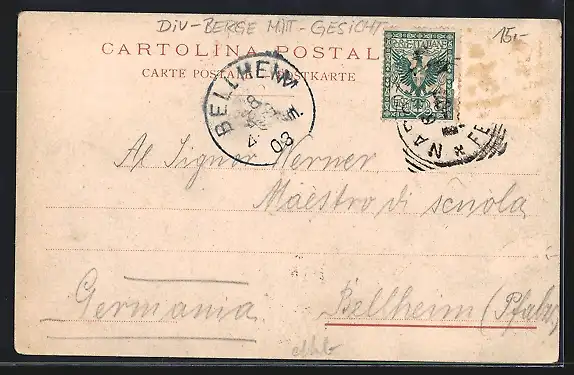 DIV-BERGE MIT-GESICHT
15.-
CARTOLINA POSTALE
CARTE POSTALE POSTKARTE
BELLHEIM
4 03
NAP
FE
Al Signor Werner
Maestro di scuola
Germania
Bellheim (Pfalz)